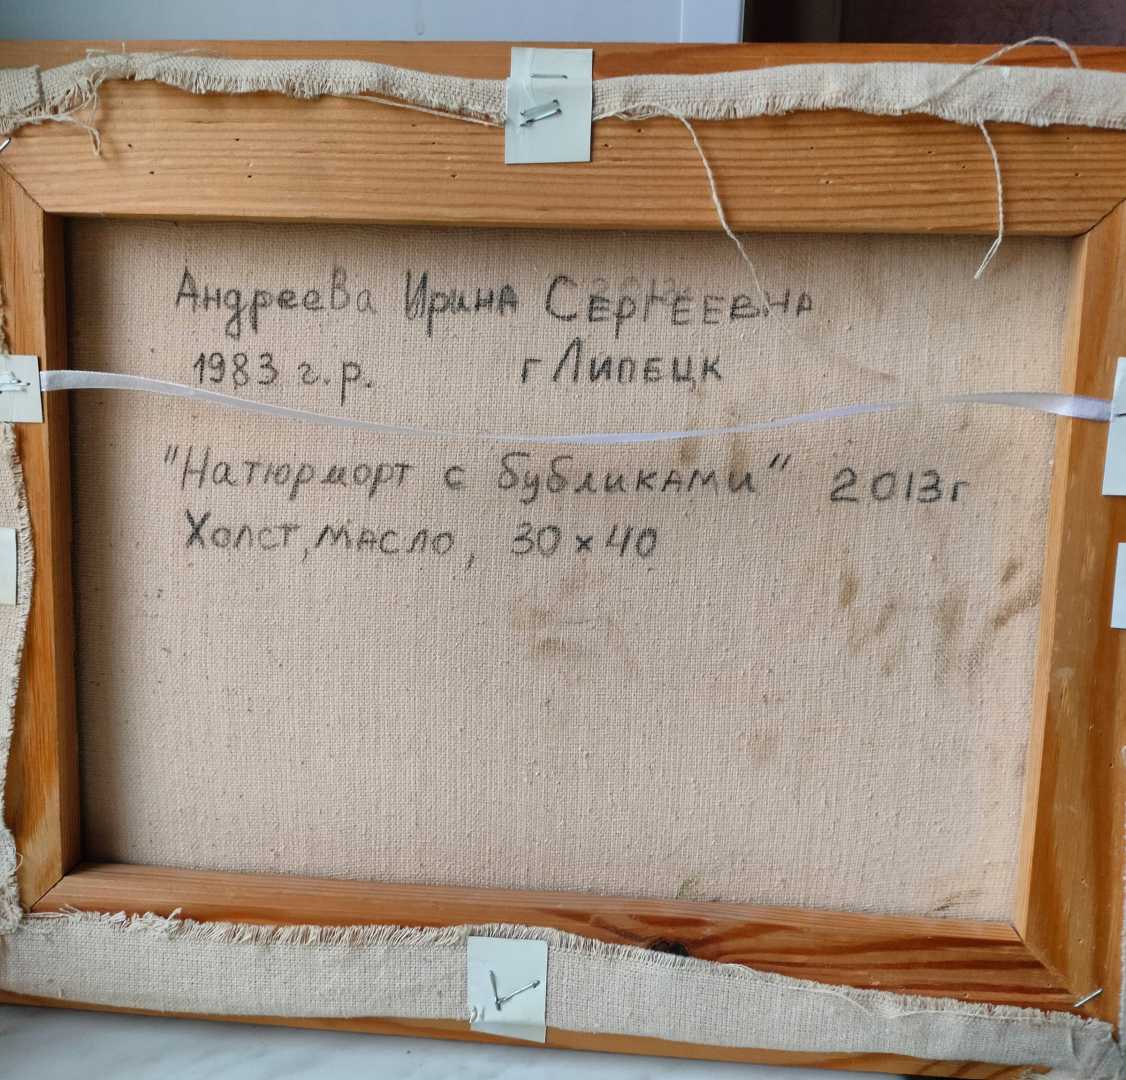 Андреева Ирина Сергеевна
1983 г.р. г Липецк
"Натюрморт с бубликами" 2013г
Холст, масло, 30×40